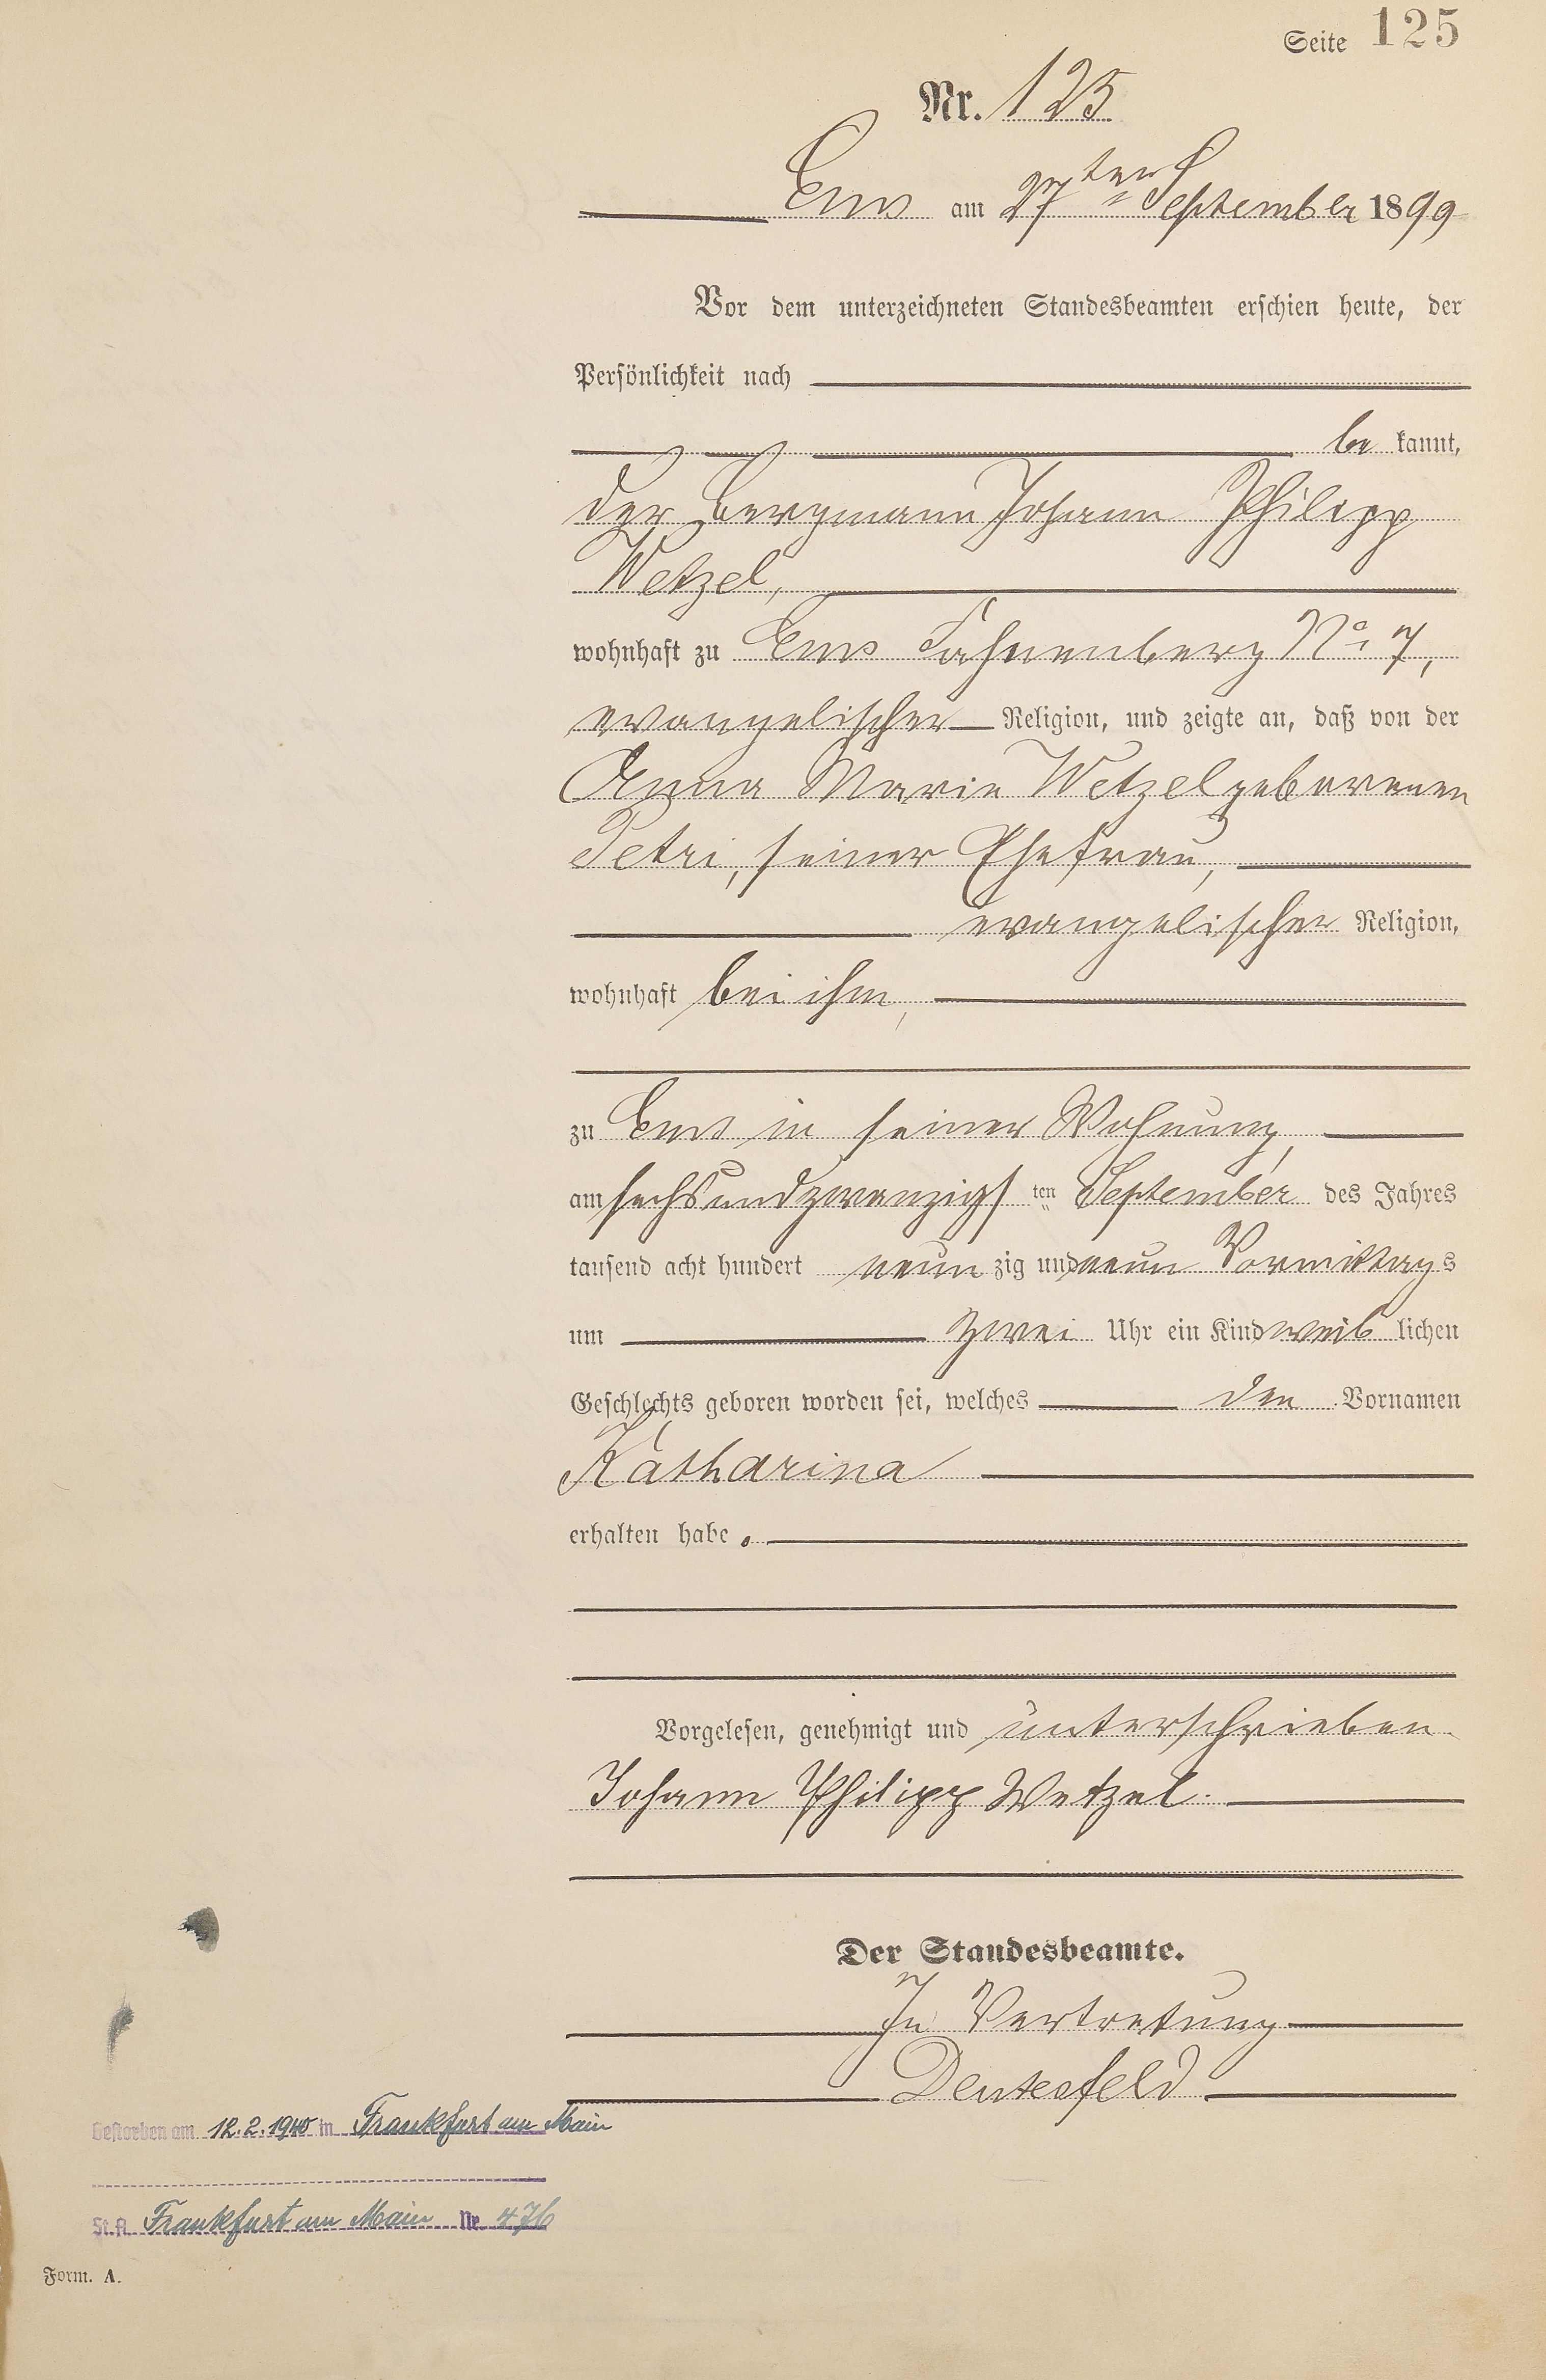 Seite 125
Nr. 125
Ems am 27ten September 1899
Vor dem unterzeichneten Standesbeamten erschien heute, der
Persönlichkeit nach
be kannt,
der Bergmann Johann Philipp
Wetzel,
wohnhaft zu Ems Fahnenberg No 7,
evangelischer Religion, und zeigte an, daß von der
Anna Marie Wetzel geborenen
Petri, seiner Ehefrau,
evangelischer Religion,
wohnhaft bei ihm,
zu Ems in seiner Wohnung,
am sechsundzwanzigsten September des Jahres
tausend acht hundert neun zig und neun Vormittags
um zwei Uhr ein Kind weib lichen
Geschlechts geboren worden sei, welches den Vornamen
Katharina
erhalten habe.
Vorgelesen, genehmigt und unterschrieben
Johann Philipp Wetzel.
Der Standesbeamte.
In Vertretung
Deutesfeld
Gestorben am 12.2.1940 in Frankfurt am Main
St.A. Frankfurt am Main Nr. 476
Form. A.